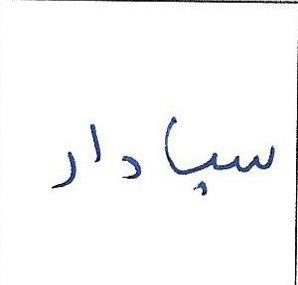 سیادار